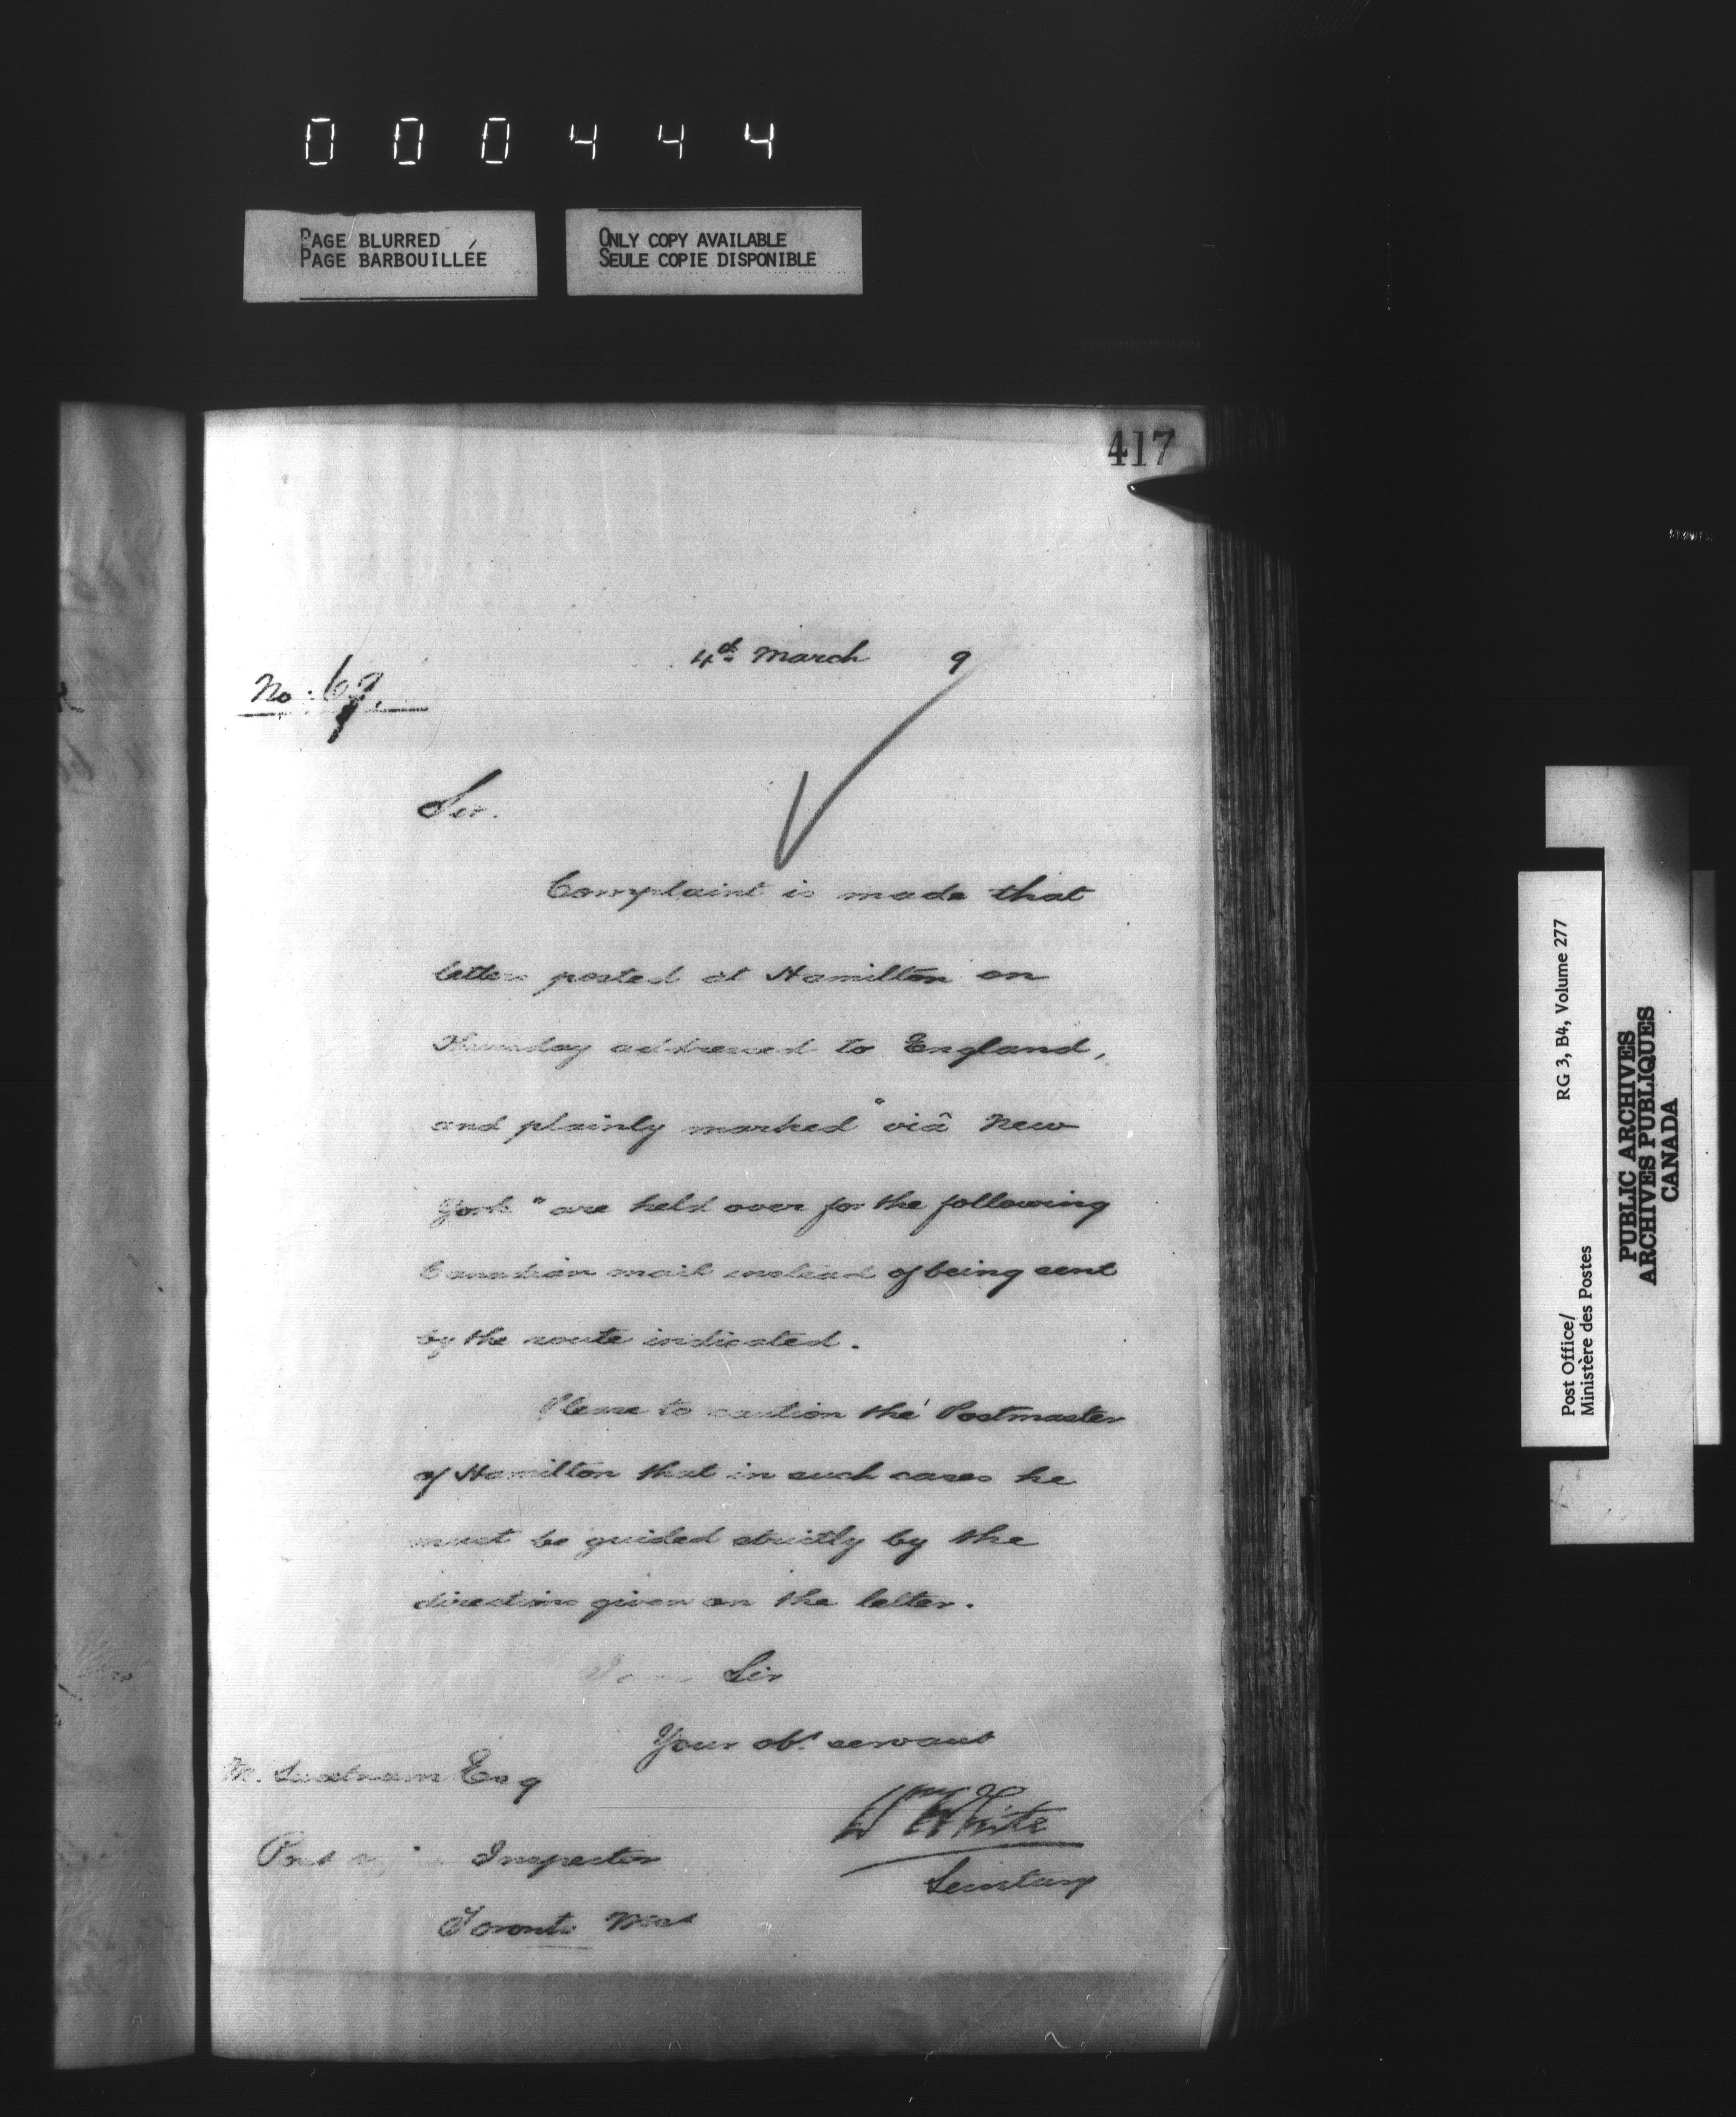 000444
PAGE BLURRED
PAGE BARBOUILLÉE
ONLY COPY AVAILABLE
SEULE COPIE DISPONIBLE
417
4th March 9
No. 69.
Sir.
Complaint is made that
letters posted at Hamilton on
Thursday addressed to England,
and plainly marked "viâ New
York" are held over for the following
Canadian mail instead of being sent
by the route indicated.
Please to caution the Postmaster
of Hamilton that in such cases he
must be guided strictly by the
directions given on the letter.
I am Sir
Your obt servant
M. Sweetnam Esq
Wm White
Post Inspector
Secretary
Toronto West
Post Office/
Ministère des Postes
RG 3, B4, Volume 277
PUBLIC ARCHIVES
ARCHIVES PUBLIQUES
CANADA